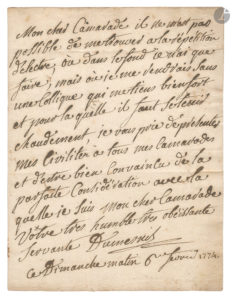 Mon cher Camarade il ne m'est pas
possible de me trouver a la repetition
d'electre, ou dans le fond je n'ai que
faire, mais ou je me rendrais sans
une Colique qui me tiens bien fort
et pour la quelle il faut se tenir
chaudement je vous prie de presenter
mes Civilités a tous mes Camarades
et d'etre bien Convaincu de la
parfaite Considération avec la
quelle je suis mon cher Camarade
Vôtre tres humble tres obéissante
Servante Dumesnil
ce Dimanche matin 6e fevrier 1774